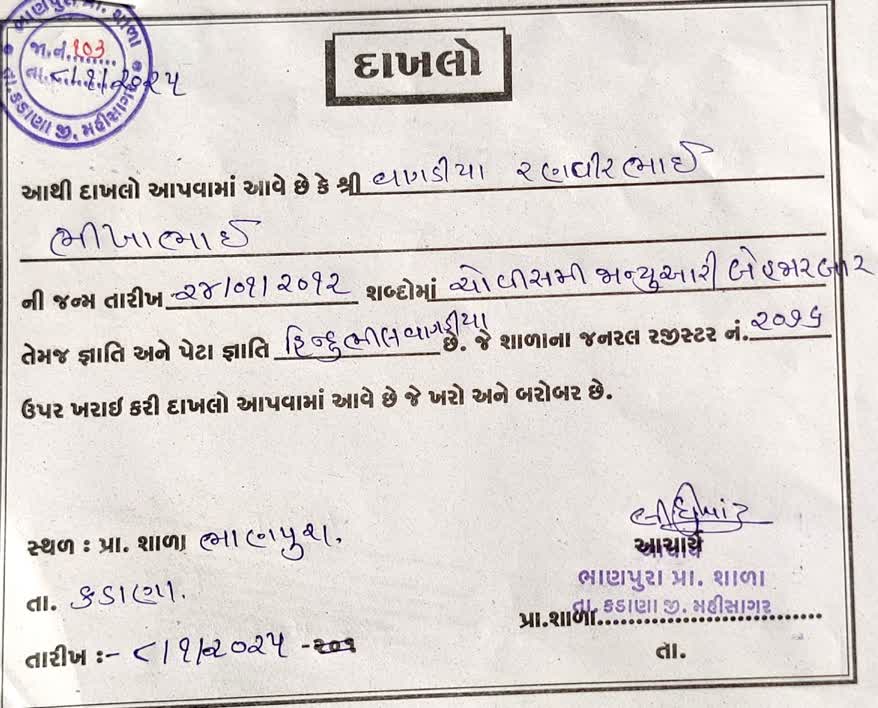 ભાણપુરા પ્રા. શાળા
જા.નં.૧૦૩
તા.૮/૧/૨૦૨૫
તા.કડાણા જી. મહીસાગર
દાખલો
આથી દાખલો આપવામાં આવે છે કે શ્રી વાગડીયા રણવીરભાઈ
ભીખાભાઈ
ની જન્મ તારીખ ૨૪/૦૧/૨૦૧૨ શબ્દોમાં ચોવીસમી જાન્યુઆરી બેહજારબાર
તેમજ જ્ઞાતિ અને પેટા જ્ઞાતિ હિન્દુભીલવાગડીયા છે. જે શાળાના જનરલ રજીસ્ટર નં. ૨૦૧૬
ઉપર ખરાઈ કરી દાખલો આપવામાં આવે છે જે ખરો અને બરોબર છે.
સ્થળ : પ્રા. શાળા ભાણપુરા.
તા. કડાણા.
તારીખ :- ૮/૧/૨૦૨૫ -૨૦૧
આચાર્ય
ભાણપુરા પ્રા. શાળા
તા. કડાણા જી. મહીસાગર
પ્રા.શાળા
તા.